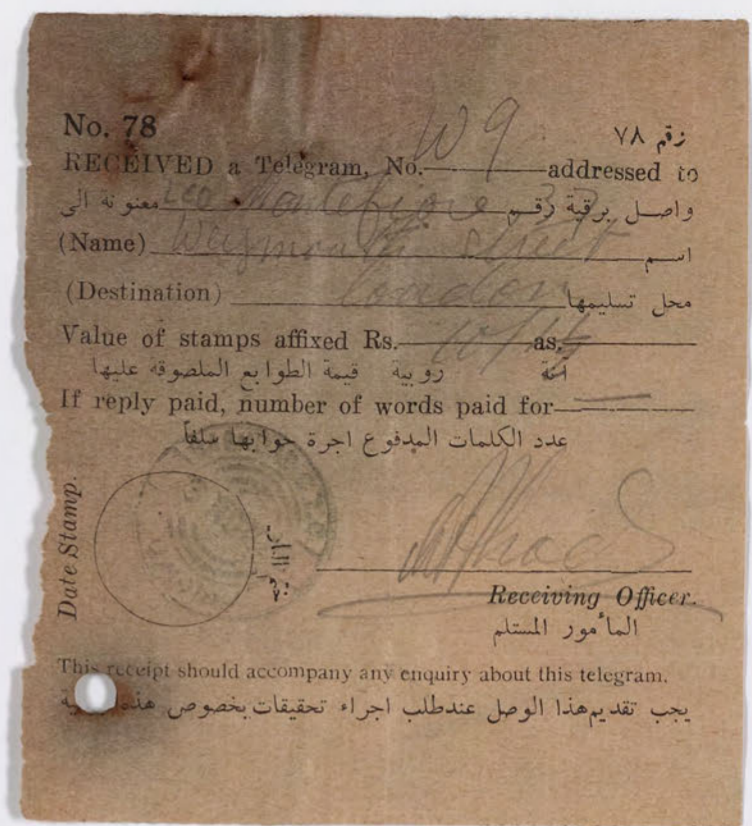 No. 78 رقم ٧٨
RECEIVED a Telegram, No. W 9 addressed to
واصل برقية رقم Leo Montefiore 33 معنونة الى
(Name) Weymouth Street اسم
(Destination) London محل تسليمها
Value of stamps affixed Rs. 10/14 as.
قيمة الطوابع الملصوقة عليها روبية آنة
If reply paid, number of words paid for —
عدد الكلمات المدفوع اجرة جوابها سلفاً
Date Stamp.
Receiving Officer.
المأمور المستلم
This receipt should accompany any enquiry about this telegram.
يجب تقديم هذا الوصل عند طلب اجراء تحقيقات بخصوص هذه